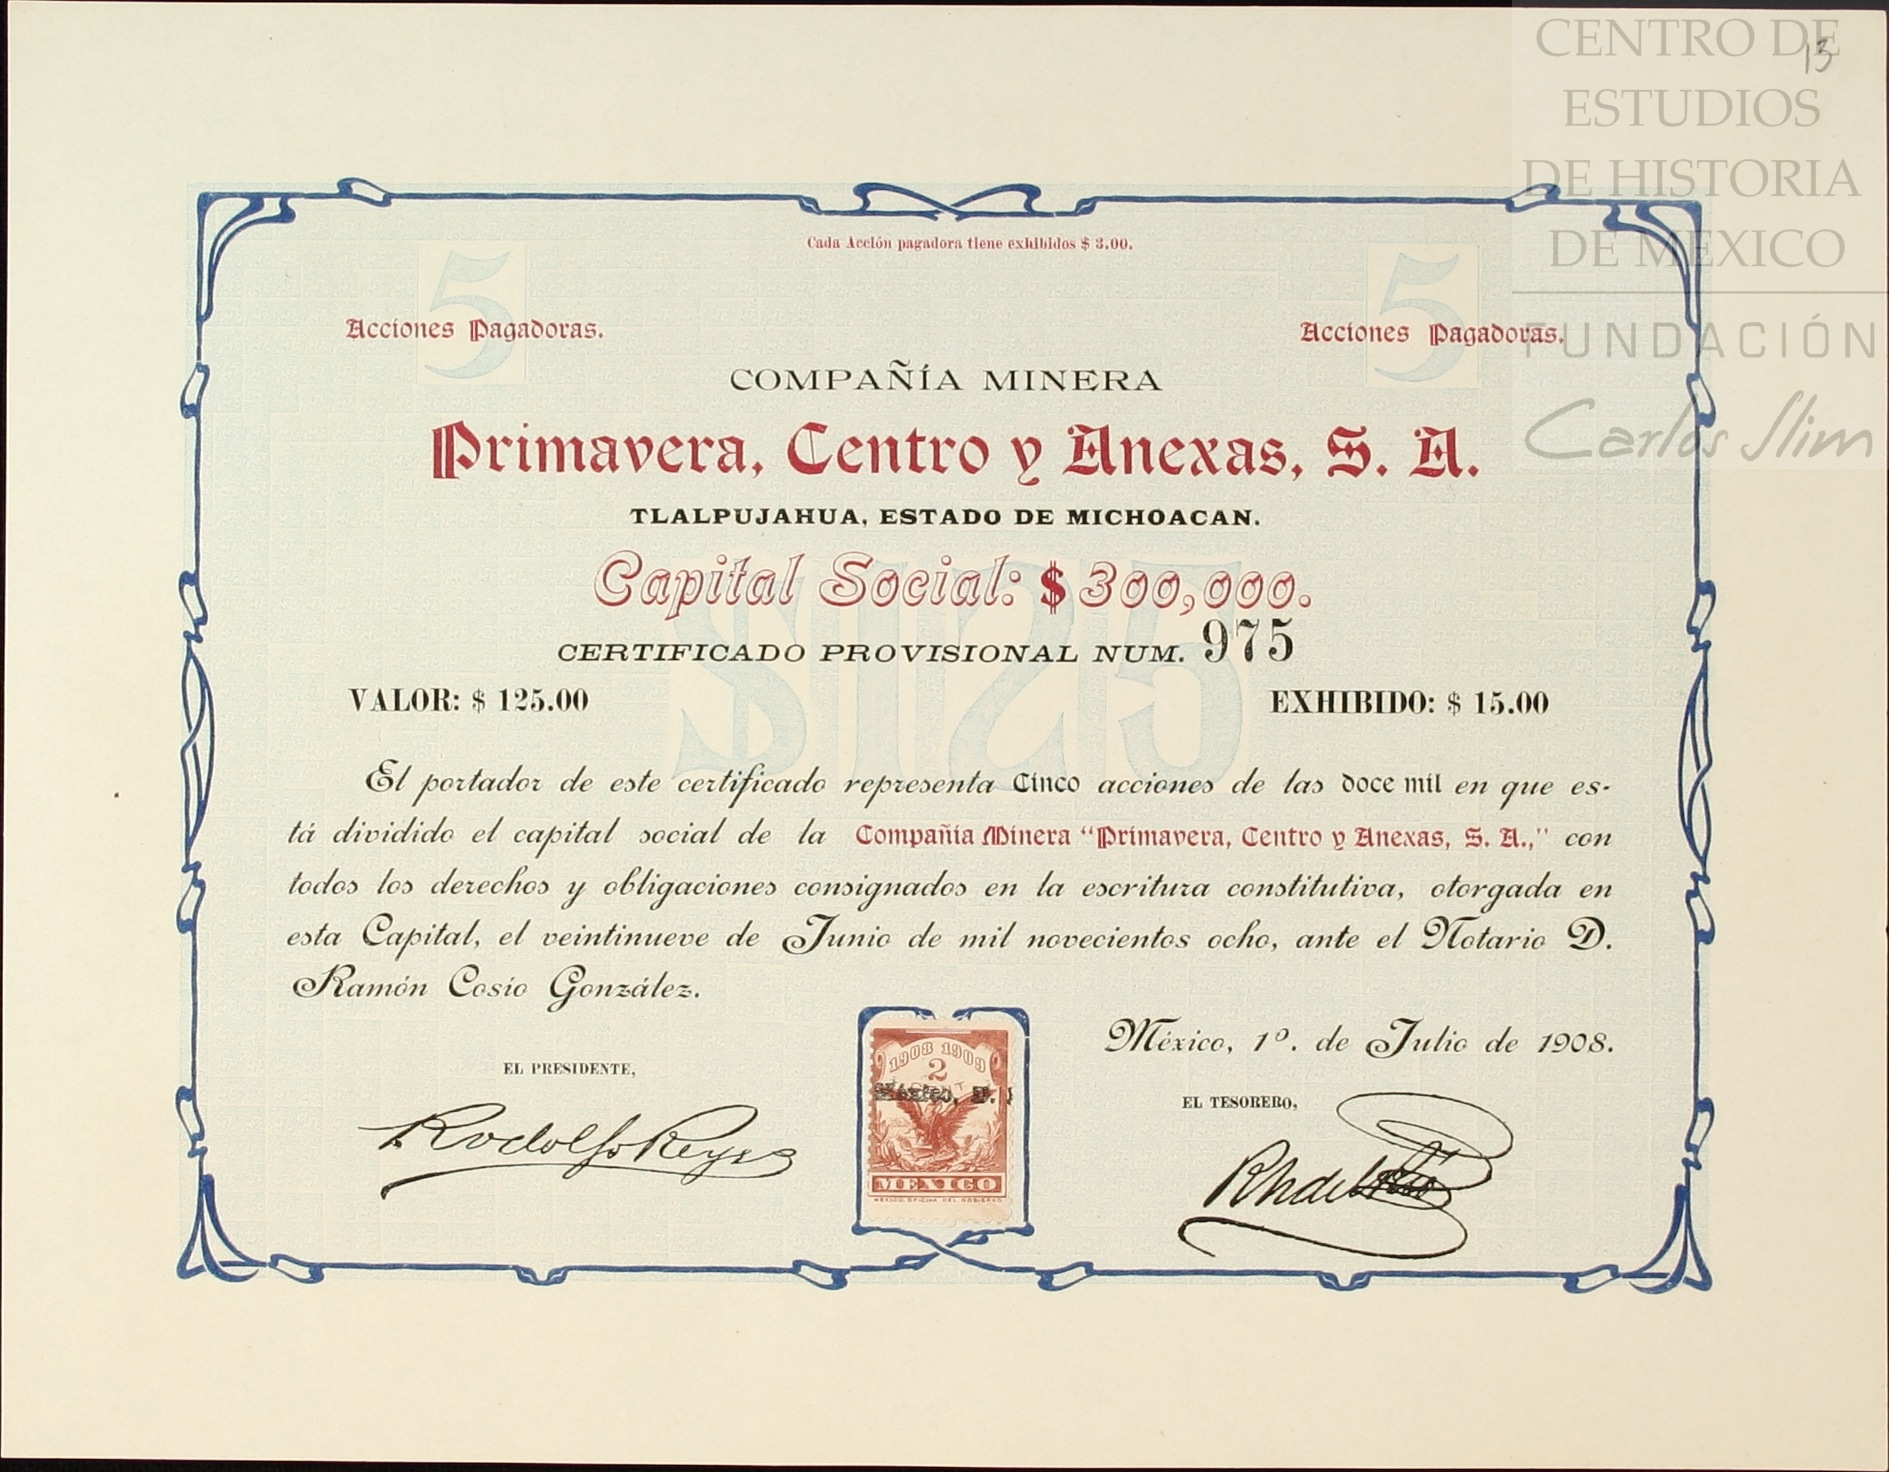 CENTRO DE
ESTUDIOS
DE HISTORIA
DE MÉXICO
FUNDACIÓN
Carlos Slim
13
Cada Acción pagadora tiene exhibidos $ 3.00.
5 5
Acciones Pagadoras. Acciones Pagadoras.
COMPAÑÍA MINERA
Primavera, Centro y Anexas, S. A.
TLALPUJAHUA, ESTADO DE MICHOACAN.
Capital Social: $ 300,000.
$125
CERTIFICADO PROVISIONAL NUM. 975
VALOR: $ 125.00 EXHIBIDO: $ 15.00
El portador de este certificado representa Cinco acciones de las doce mil en que es-
tá dividido el capital social de la Compañía Minera "Primavera, Centro y Anexas, S. A.," con
todos los derechos y obligaciones consignados en la escritura constitutiva, otorgada en
esta Capital, el veintinueve de Junio de mil novecientos ocho, ante el Notario D.
Ramón Cosío González.
México, 1º. de Julio de 1908.
EL PRESIDENTE,
Rodolfo Reyes
EL TESORERO,
1908 1909
2
México, D.
MEXICO